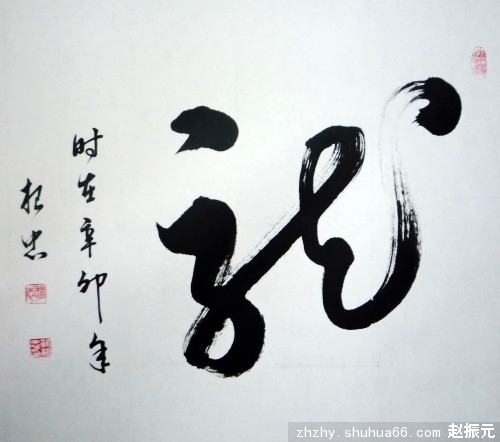 龍
时在辛卯年
忠
zhzhy.shuhua66.com 赵振元